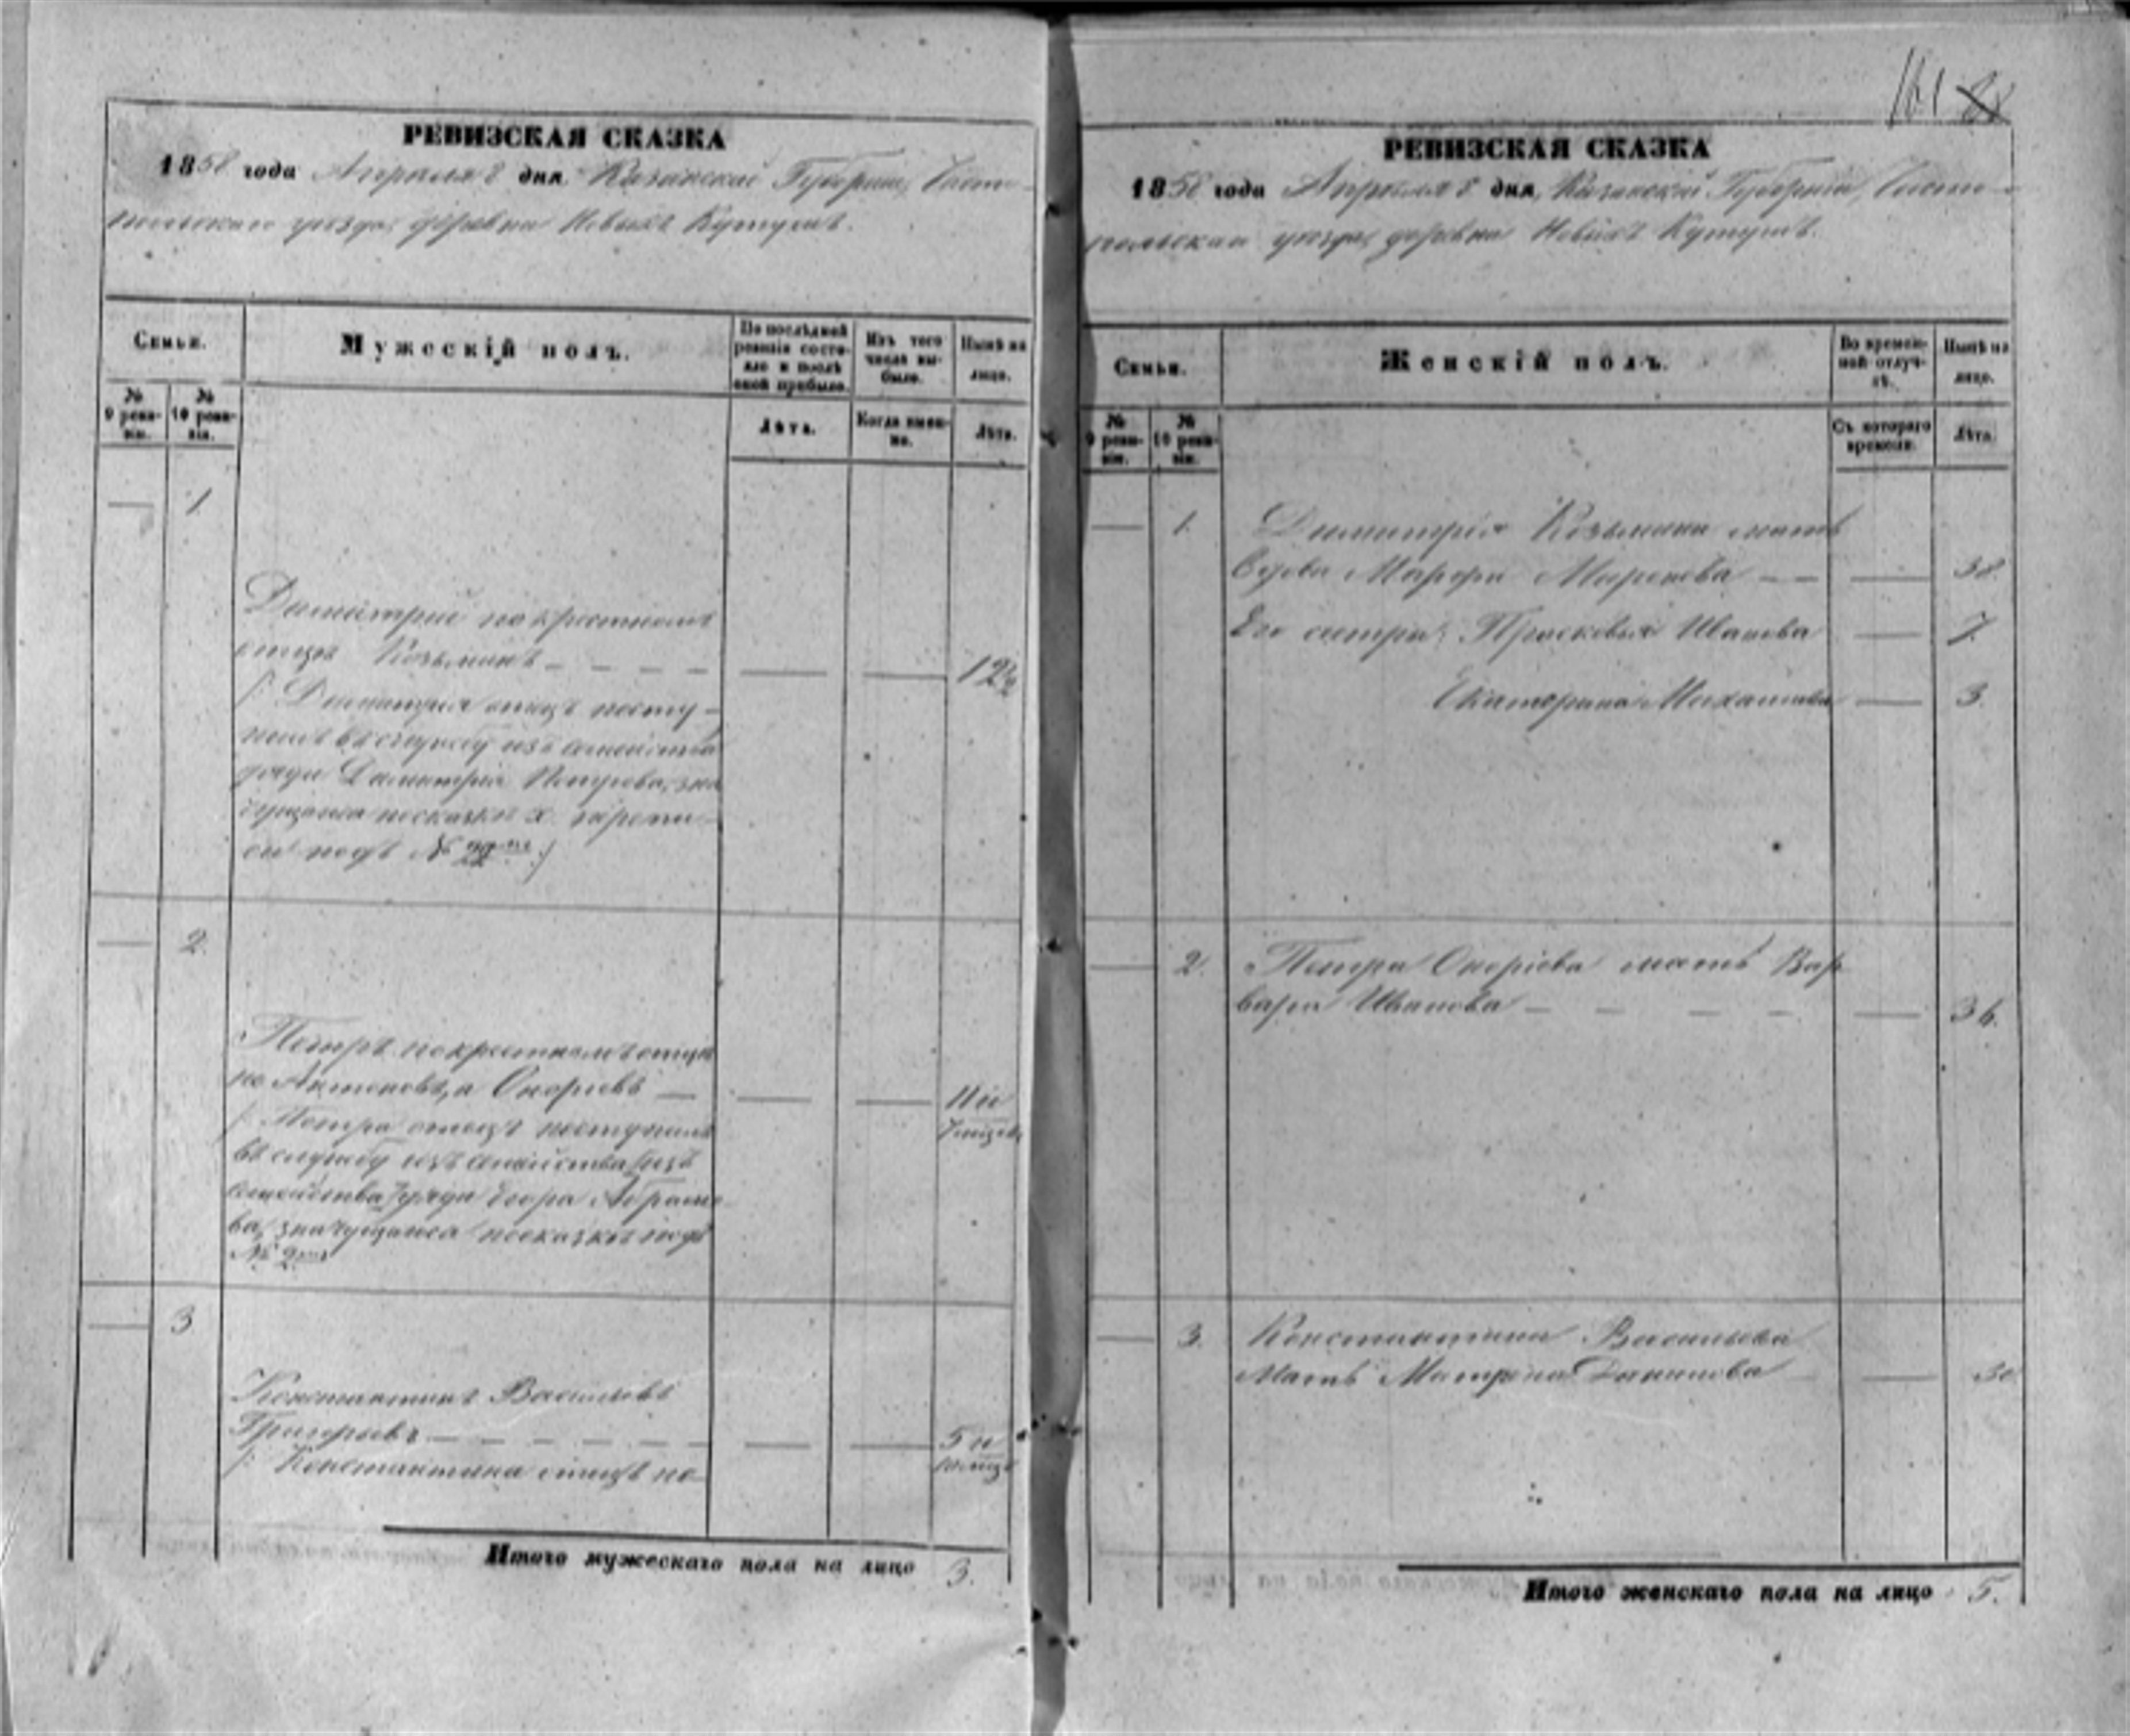 РЕВИЗСКАЯ СКАЗКА
1858 года Апреля 8 дня Казанской Губернiи, Чисто-
польскаго уезда, деревни Новыхъ Кутушъ.
Семьи.
Мужескiй полъ.
По послѣдней ревизiи состояло и послѣ оной прибыло.
Изъ того числа выбыло.
Нынѣ на лицо.
№ 9 ревизiи.
№ 10 ревизiи.
Лѣта.
Когда именно.
Лѣта.
— 1
Димитрiй по крестному
отцу Козьминъ — — — — — — 12½
/: Димитрiя отецъ посту-
пилъ въ службу изъ семейства
дяди Димитрiя Петрова, зна
чущагося по сказкѣ
подъ № 22мъ :/
— 2.
Петръ по крестному отцу
но Антоновъ, а Онорiевъ — — — 11 и
7 мѣсяц.
/: Петра отецъ поступилъ
въ службу изъ семейства /изъ
семейства/ дяди Егора Абрамо
ва, значущагося по сказкѣ подъ
№ 2мъ
— 3
Константинъ Васильевъ
Григорьевъ — — — — — — — — 5 и
10 мѣсяц
/: Константина отецъ по-
Итого мужескаго пола на лицо 3.
161 88
РЕВИЗСКАЯ СКАЗКА
1858 года Апреля 8 дня, Казанской Губернiи, Чисто-
польскаго уезда, деревни Новыхъ Кутушъ.
Семьи.
Женскiй полъ.
Во временной отлучкѣ.
Нынѣ на лицо.
№ 9 ревизiи.
№ 10 ревизiи.
Съ котораго времени.
Лѣта.
— 1. Димитрiя Козьмина мать
вдова Марфа Маркова — — — 38.
Его сестры: Прасковья Иванова — 7.
Екатерина Михайлова — 3.
— 2. Петра Онорiева мать Вар
вара Иванова — — — — — 36.
— 3. Константина Васильева
Мать Матрена Данилова — 30
Итого женскаго пола на лицо 5.